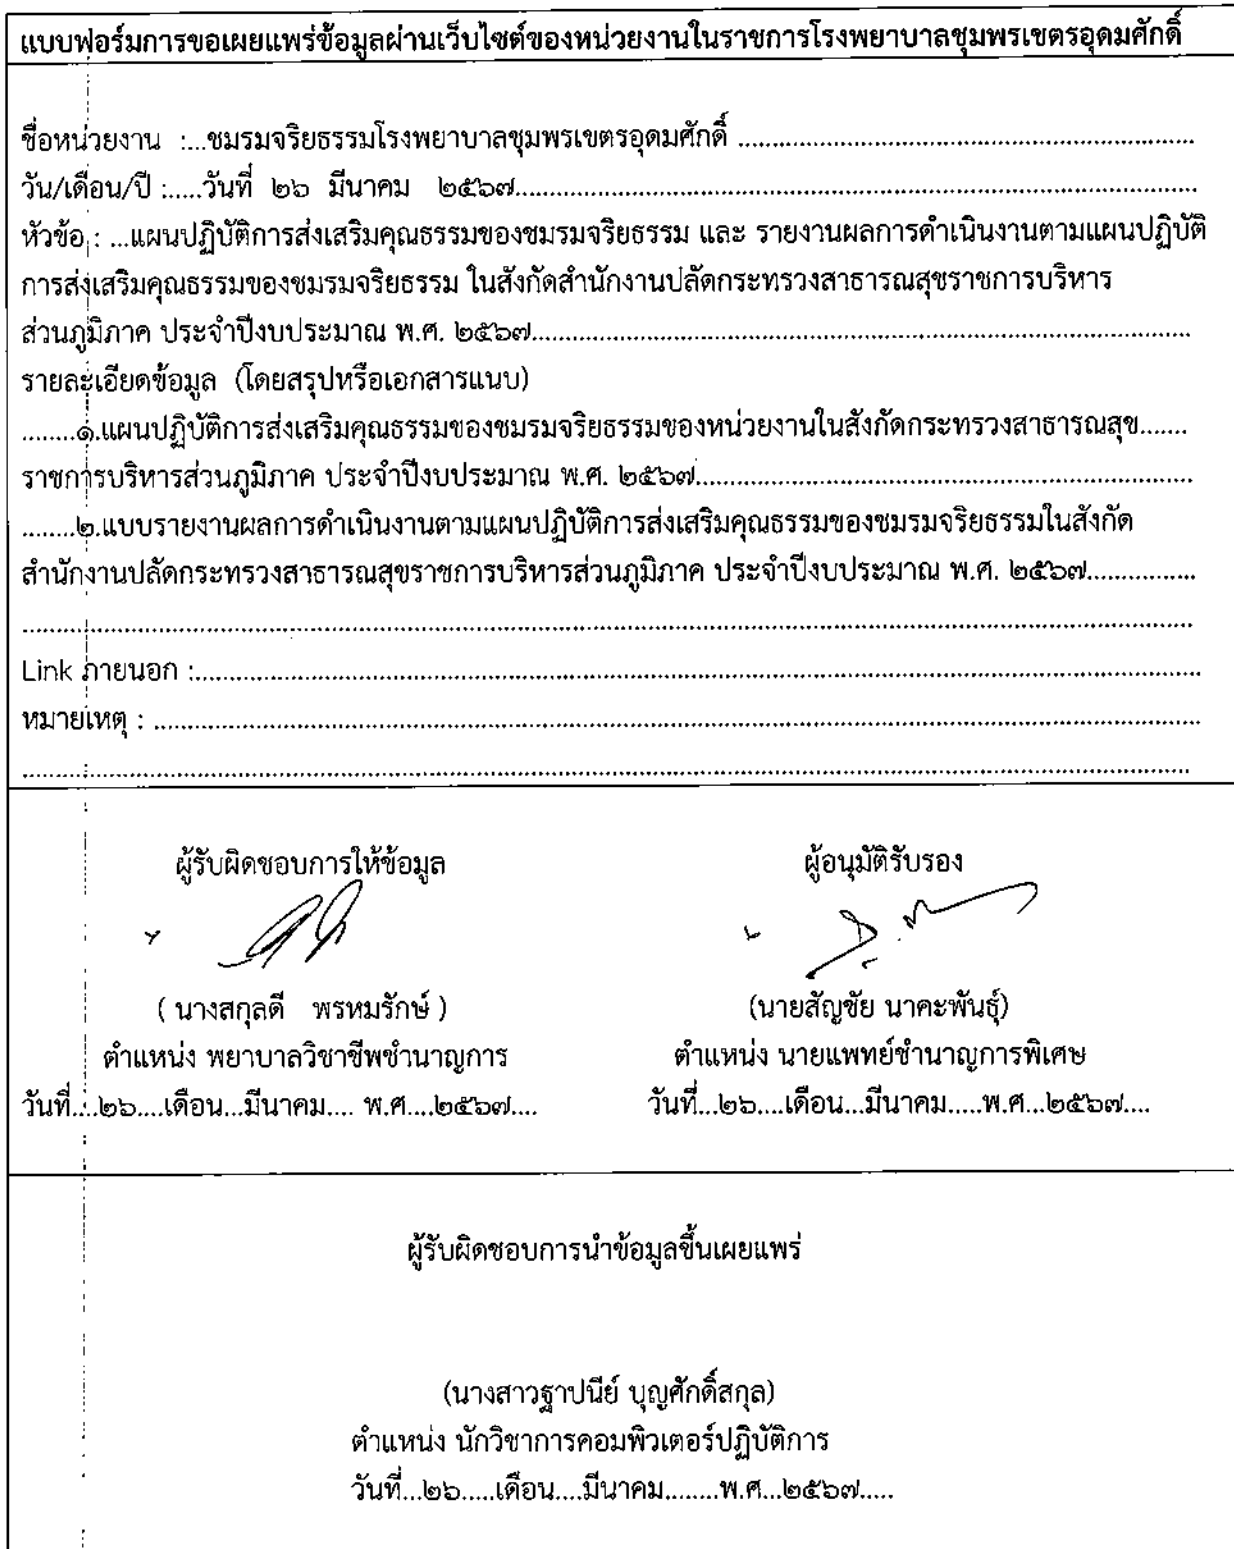 แบบฟอร์มการขอเผยแพร่ข้อมูลผ่านเว็บไซต์ของหน่วยงานในราชการโรงพยาบาลชุมพรเขตรอุดมศักดิ์
ชื่อหน่วยงาน :...ชมรมจริยธรรมโรงพยาบาลชุมพรเขตรอุดมศักดิ์ ...............................................................
วัน/เดือน/ปี :.....วันที่ ๒๖ มีนาคม ๒๕๖๗...............................................................
หัวข้อ : ...แผนปฏิบัติการส่งเสริมคุณธรรมของชมรมจริยธรรม และ รายงานผลการดำเนินงานตามแผนปฏิบัติ
การส่งเสริมคุณธรรมของชมรมจริยธรรม ในสังกัดสำนักงานปลัดกระทรวงสาธารณสุขราชการบริหาร
ส่วนภูมิภาค ประจำปีงบประมาณ พ.ศ. ๒๕๖๗...............................................................
รายละเอียดข้อมูล (โดยสรุปหรือเอกสารแนบ)
........๑.แผนปฏิบัติการส่งเสริมคุณธรรมของชมรมจริยธรรมของหน่วยงานในสังกัดกระทรวงสาธารณสุข.......
ราชการบริหารส่วนภูมิภาค ประจำปีงบประมาณ พ.ศ. ๒๕๖๗...............................................................
........๒.แบบรายงานผลการดำเนินงานตามแผนปฏิบัติการส่งเสริมคุณธรรมของชมรมจริยธรรมในสังกัด
สำนักงานปลัดกระทรวงสาธารณสุขราชการบริหารส่วนภูมิภาค ประจำปีงบประมาณ พ.ศ. ๒๕๖๗................
...............................................................
Link ภายนอก :...............................................................
หมายเหตุ : ...............................................................
...............................................................
ผู้รับผิดชอบการให้ข้อมูล ผู้อนุมัติรับรอง
( นางสกุลดี พรหมรักษ์ ) (นายสัญชัย นาคะพันธุ์)
ตำแหน่ง พยาบาลวิชาชีพชำนาญการ ตำแหน่ง นายแพทย์ชำนาญการพิเศษ
วันที่....๒๖....เดือน...มีนาคม.... พ.ศ....๒๕๖๗.... วันที่...๒๖....เดือน...มีนาคม.....พ.ศ...๒๕๖๗....
ผู้รับผิดชอบการนำข้อมูลขึ้นเผยแพร่
(นางสาวฐาปนีย์ บุญศักดิ์สกุล)
ตำแหน่ง นักวิชาการคอมพิวเตอร์ปฏิบัติการ
วันที่...๒๖.....เดือน....มีนาคม........พ.ศ...๒๕๖๗.....